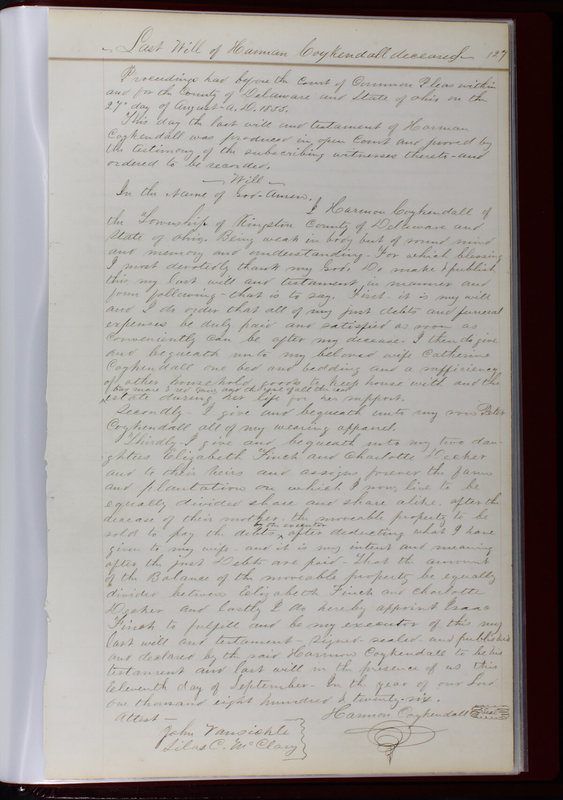 Last Will of Harman Coykendall deceased 127
Proceedings had before the Court of Common Pleas within
and for the County of Delaware and State of Ohio on the
27th day of August A.D. 1835.
This day the last will and testament of Harman
Coykendall was produced in open Court and proved by
the testimony of the subscribing witnesses thereto and
ordered to be recorded.
Will
In the Name of God Amen.
I Harmon Coykendall of
the Township of Kingston County of Delaware and
State of Ohio. Being weak in body but of sound mind
and memory and understanding. For which blessing
I most devoutly thank my God. Do make & publish
this my last will and testament in manner and
form following - that is to say. First - it is my will
and I do order that all of my just debts and funeral
expenses be duly paid and satisfied as soon as
conveniently can be after my decease. I then do give
and bequeath unto my beloved wife Catherine
Coykendall one bed and bedding and a sufficiency
of other household goods to keep house with and the
bay mare & of all the real
estate during her life for her support.
Secondly - I give and bequeath unto my son Peter
Coykendall all of my wearing apparel.
Thirdly I give and bequeath unto my two dau-
ghters Elizabeth Finch and Charlotte Decker
and to their heirs and assigns forever the farm
and plantation on which I now live to be
equally divided share and share alike, after the
decease of their mother, the moveable property to be
by the executor
sold to pay the debts after deducting what I have
given to my wife - and it is my intent and meaning
after the just Debts are paid - That the amount
of the Balance of the moveable property be equally
divided between Elizabeth Finch and Charlotte
Decker and lastly I do hereby appoint Isaac
Finch to fulfill and be my executor of this my
last will and testament - Signed sealed and published
and declared by the said Harmon Coykendall to be his
testament and last will in the presence of us this
Eleventh day of September - In the year of our Lord
One thousand eight hundred & twenty-six.
Attest - Harmon Coykendall Seal
John Vansickle
Silas C. McClary